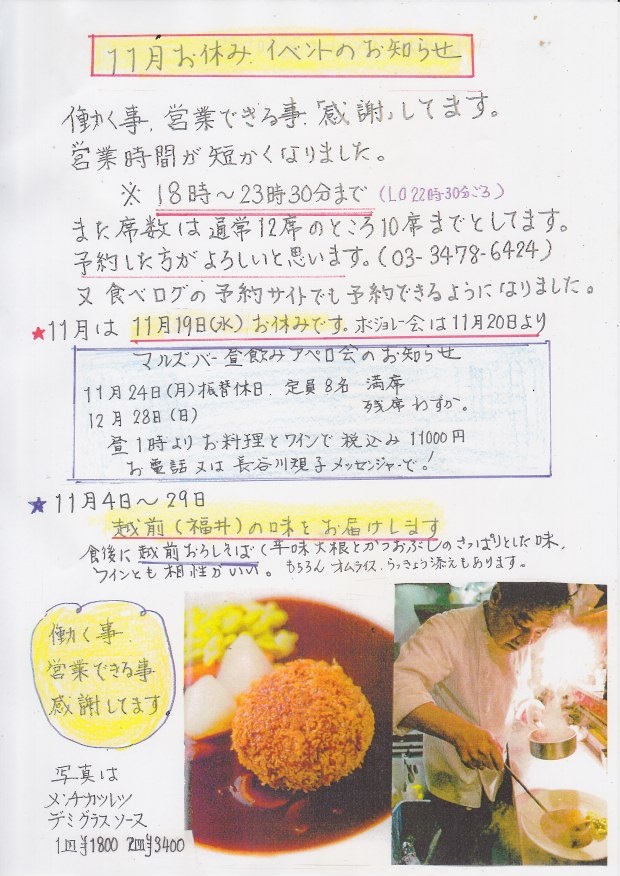 11月お休み.イベントのお知らせ
働く事.営業できる事.「感謝」してます。
営業時間が短かくなりました。
※ 18時〜23時30分まで (LO 22時30分ごろ)
また席数は通常12席のところ10席までとしてます。
予約した方がよろしいと思います。(03-3478-6424)
又食べログの予約サイトでも予約できるようになりました。
★11月は 11月19日(水)お休みです。ボジョレー会は11月20日より
マルズバー昼飲みアペロ会のお知らせ
11月24日(月)振替休日.定員8名 満席
12月28日(日) 残席わずか。
昼1時よりお料理とワインで税込み11000円
お電話又は長谷川規子メッセンジャーで!
★11月4日〜29日
越前(福井)の味をお届けします
食後に越前おろしそば(辛味大根とかつおぶしのさっぱりとした味.
ワインとも相性がいい。もちろんオムライス.らっきょう添えもあります。
働く事.
営業できる事
感謝してます
写真は
メンチカツレツ
デミグラスソース
1皿¥1800 2皿¥3400